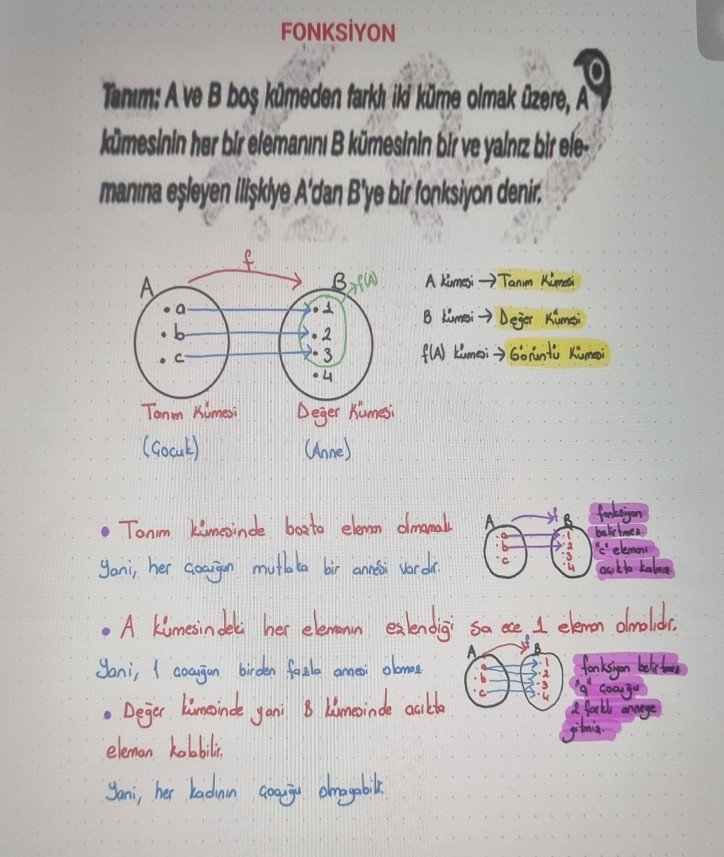 FONKSİYON
Tanım: A ve B boş kümeden farklı iki küme olmak üzere, A
kümesinin her bir elemanını B kümesinin bir ve yalnız bir ele-
manına eşleyen ilişkiye A'dan B'ye bir fonksiyon denir.
f
A
B
f(A)
a
1
b
2
c
3
4
Tanım Kümesi
Değer Kümesi
(Çocuk)
(Anne)
A kümesi → Tanım Kümesi
B kümesi → Değer Kümesi
f(A) kümesi → Görüntü Kümesi
• Tanım kümesinde boşta eleman olmamalı.
Yani, her çocuğun mutlaka bir annesi vardır.
A f B
a 1
b 2
c 3
4
fonksiyon
belirtmez.
"c" elemanı
açıkta kalmış
• A kümesindeki her elemanın eşlendiği sadece 1 eleman olmalıdır.
Yani, 1 çocuğun birden fazla annesi olamaz
A f B
a 1
b 2
c 3
4
fonksiyon belirtmez
"a" çocuğu
2 farklı anneye
gitmiş.
• Değer kümesinde yani B kümesinde açıkta
eleman kalabilir.
Yani, her kadının çocuğu olmayabilir.